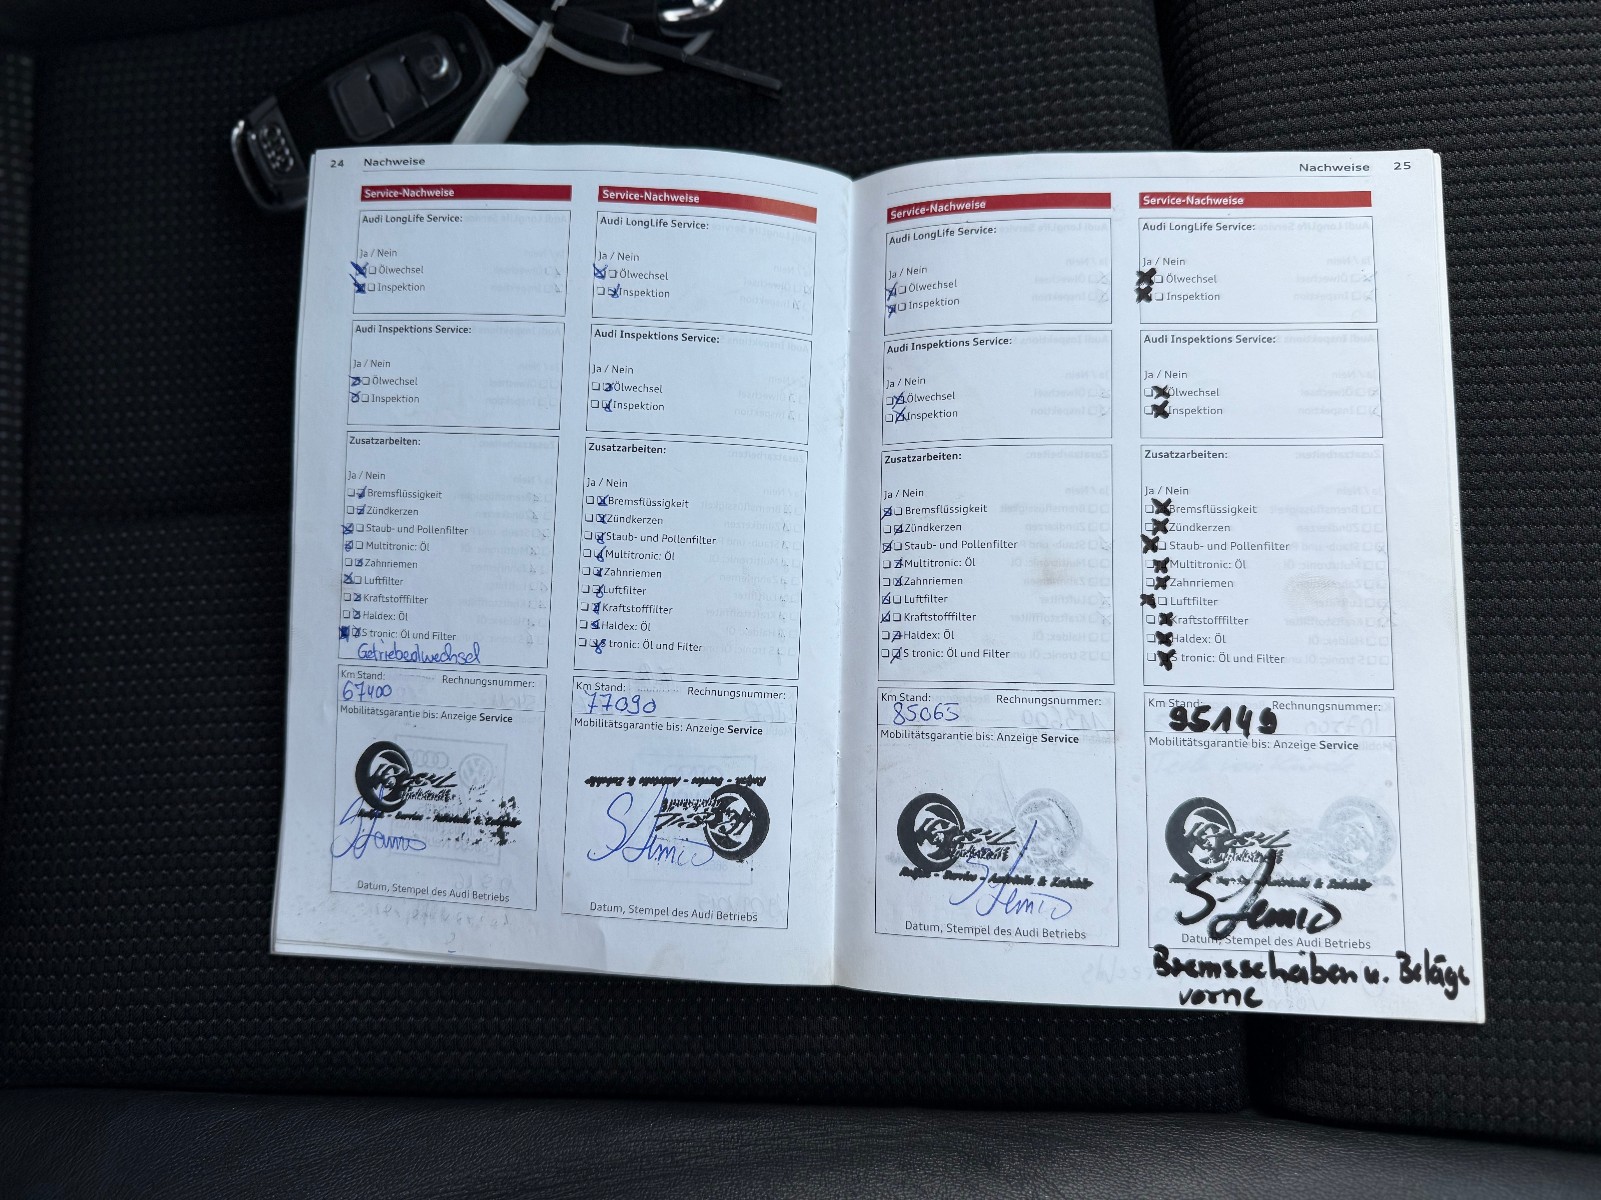 24 Nachweise
Service-Nachweise
Audi LongLife Service:
Ja / Nein
Ölwechsel
Inspektion
Audi Inspektions Service:
Ja / Nein
Ölwechsel
Inspektion
Zusatzarbeiten:
Ja / Nein
Bremsflüssigkeit
Zündkerzen
Staub- und Pollenfilter
Multitronic: Öl
Zahnriemen
Luftfilter
Kraftstofffilter
Haldex: Öl
S tronic: Öl und Filter
Getriebeölwechsel
Km Stand: Rechnungsnummer:
67400
Mobilitätsgarantie bis: Anzeige Service
Datum, Stempel des Audi Betriebs
Service-Nachweise
Audi LongLife Service:
Ja / Nein
Ölwechsel
Inspektion
Audi Inspektions Service:
Ja / Nein
Ölwechsel
Inspektion
Zusatzarbeiten:
Ja / Nein
Bremsflüssigkeit
Zündkerzen
Staub- und Pollenfilter
Multitronic: Öl
Zahnriemen
Luftfilter
Kraftstofffilter
Haldex: Öl
S tronic: Öl und Filter
Km Stand: Rechnungsnummer:
77090
Mobilitätsgarantie bis: Anzeige Service
Datum, Stempel des Audi Betriebs
Nachweise 25
Service-Nachweise
Audi LongLife Service:
Ja / Nein
Ölwechsel
Inspektion
Audi Inspektions Service:
Ja / Nein
Ölwechsel
Inspektion
Zusatzarbeiten:
Ja / Nein
Bremsflüssigkeit
Zündkerzen
Staub- und Pollenfilter
Multitronic: Öl
Zahnriemen
Luftfilter
Kraftstofffilter
Haldex: Öl
S tronic: Öl und Filter
Km Stand: Rechnungsnummer:
85065
Mobilitätsgarantie bis: Anzeige Service
Datum, Stempel des Audi Betriebs
Service-Nachweise
Audi LongLife Service:
Ja / Nein
Ölwechsel
Inspektion
Audi Inspektions Service:
Ja / Nein
Ölwechsel
Inspektion
Zusatzarbeiten:
Ja / Nein
Bremsflüssigkeit
Zündkerzen
Staub- und Pollenfilter
Multitronic: Öl
Zahnriemen
Luftfilter
Kraftstofffilter
Haldex: Öl
S tronic: Öl und Filter
Km Stand: Rechnungsnummer:
95149
Mobilitätsgarantie bis: Anzeige Service
Datum, Stempel des Audi Betriebs
Bremsscheiben u. Beläge
vorne